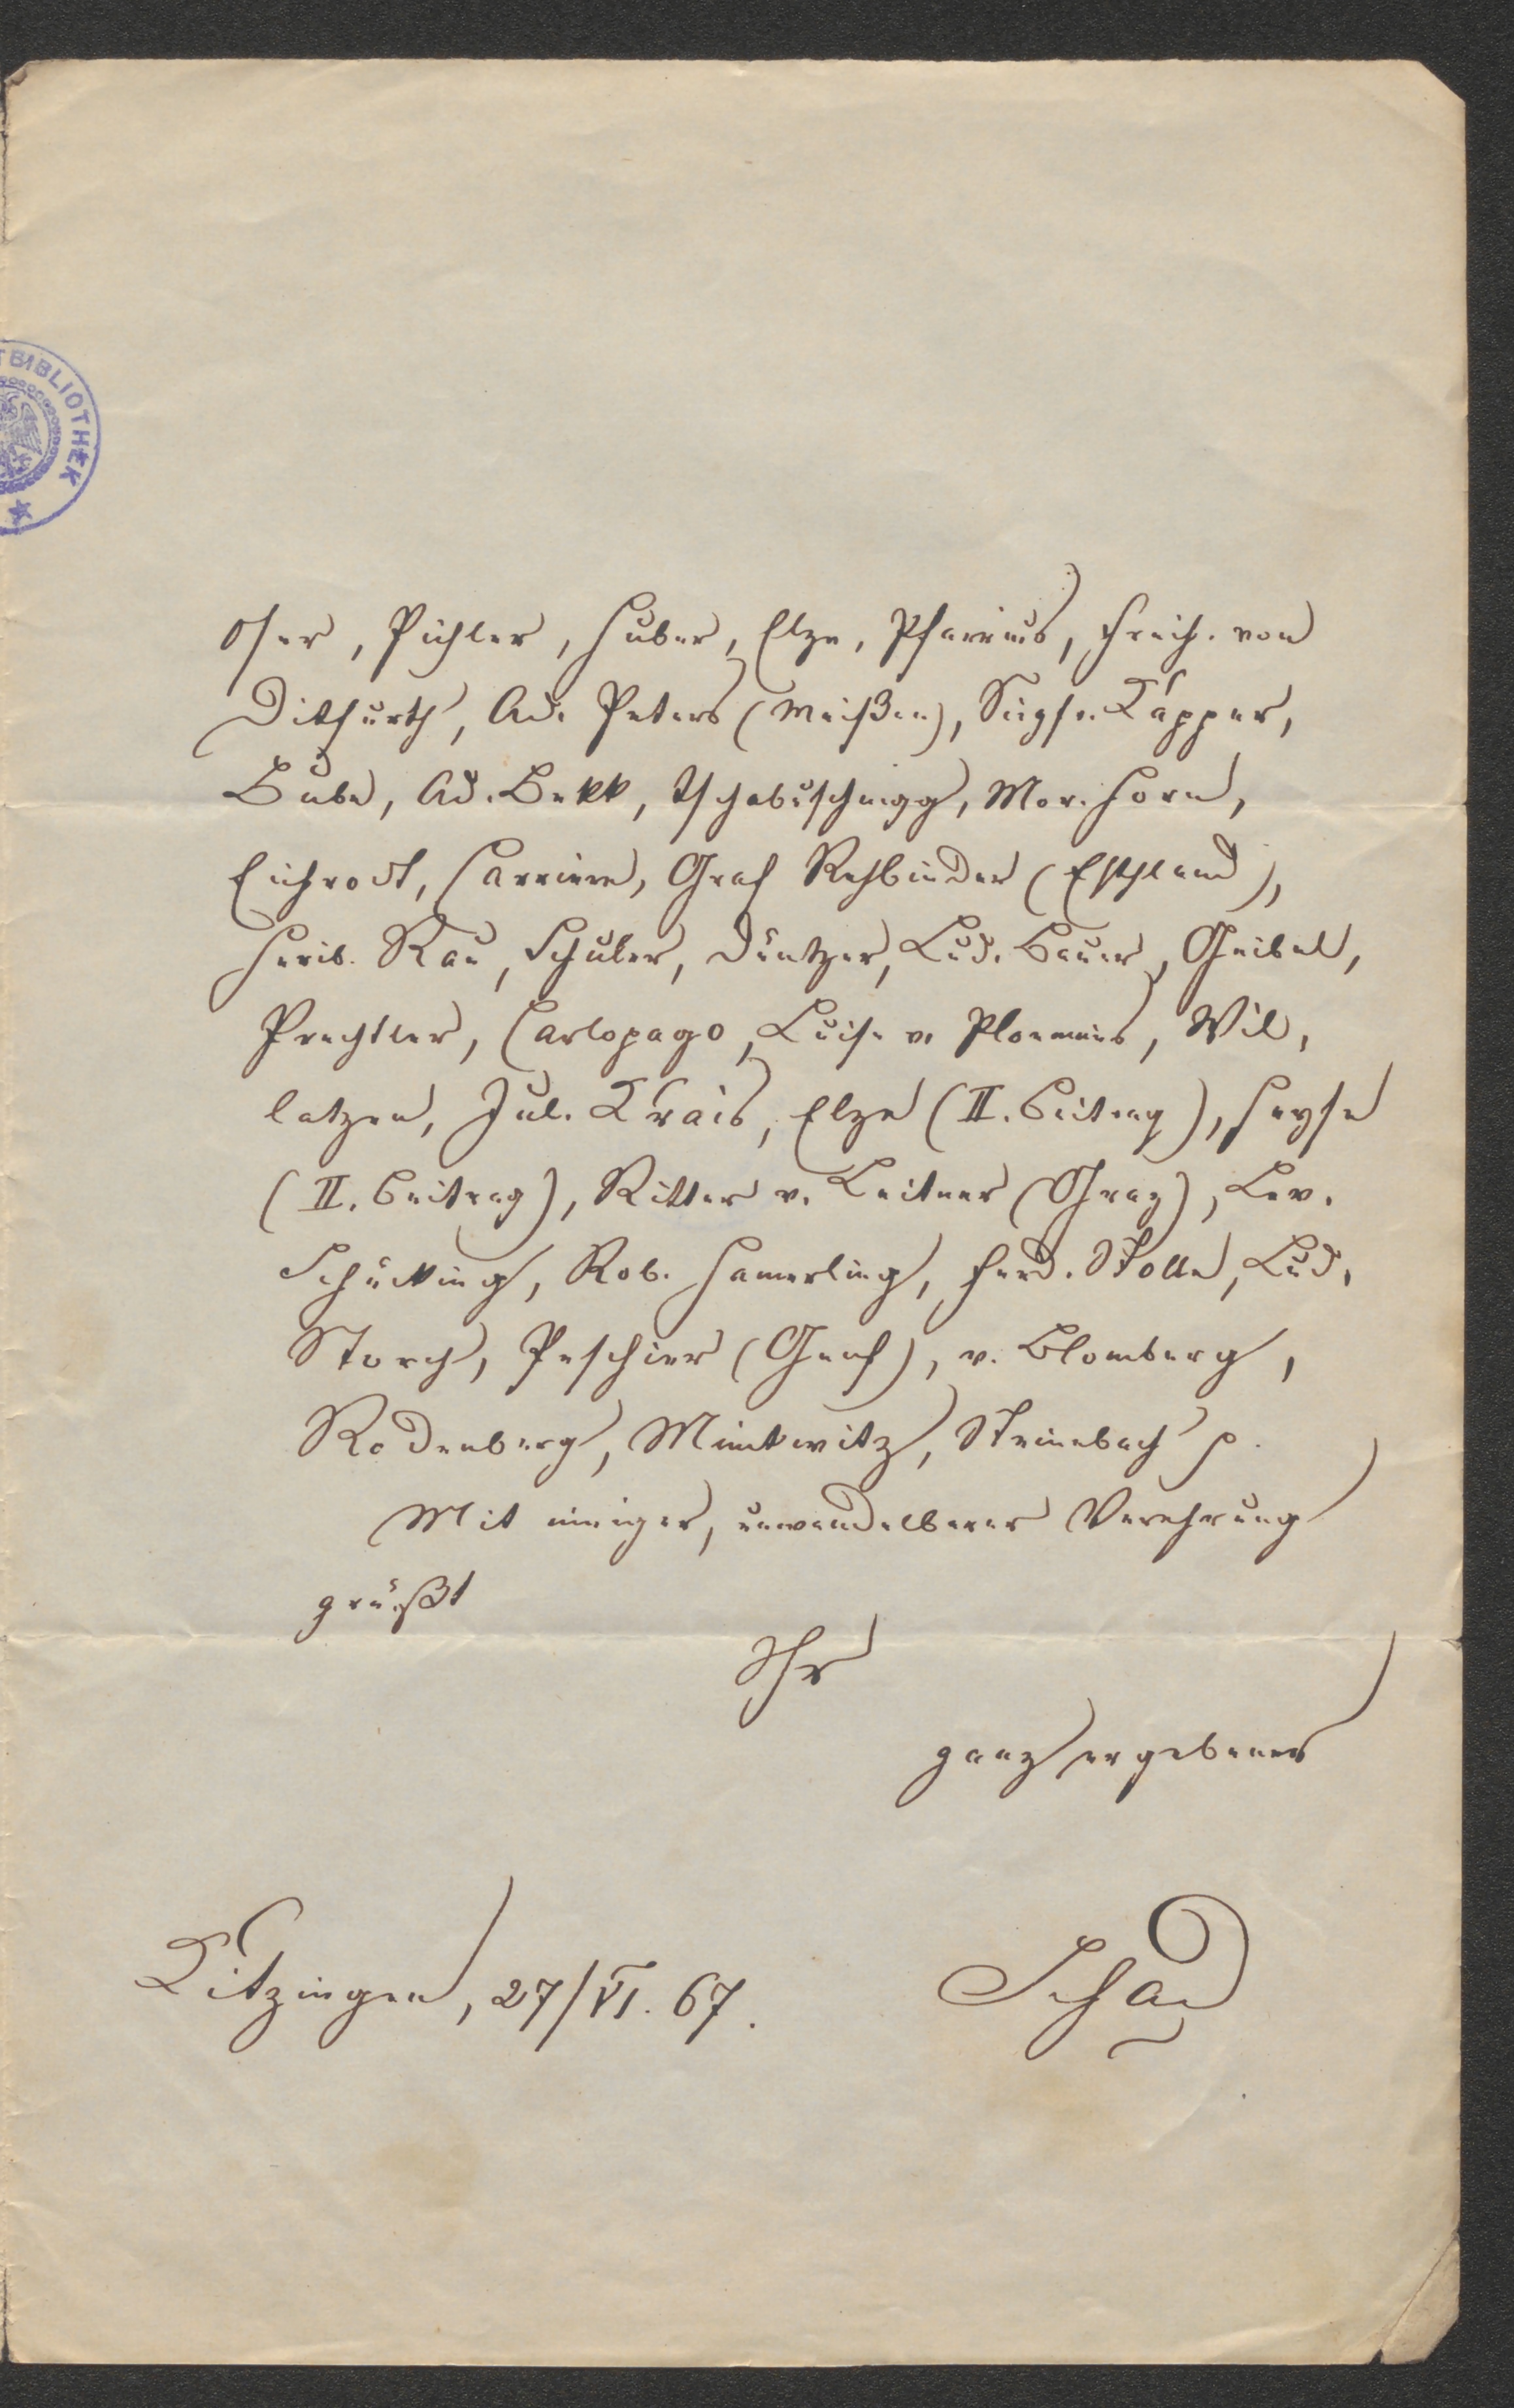 TBIBLIOTHEK
Oser, Pichler, Huber, Elze, Pfarrius, Freih. von
Ditfurth, Ad. Peters (Meißen), Siegfr. Kapper,
Bube, Ad. Bekk, Tschabuschnigg, Mor. Horn,
Eichrodt, Carriere, Graf Rehbinder (Esthland),
Herib. Rau, Schuler, Düntzer, Lud. Bauer, Geibel,
Prechtler, Carlopago, Luise v. Ploennies, Wil,
latzen, Jul. Krais, Elze (II. Beitrag), Heyse
(II. Beitrag), Ritter v. Leitner (Graz), Lev.
Schücking, Rob. Hamerling, Ferd. Stolle, Lud.
Storch, Peschier (Genf), v. Blomberg,
Rodenberg, Minckwitz, Steinebach p.
Mit inniger, unwandelbarer Verehrung
grüßt
Ihr
ganz ergebener
Kitzingen, 27/VI. 67.
Schad